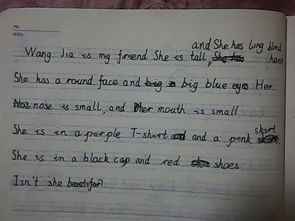 and She has long blond
Wang Jia is my friend She is tall, She has hair
She has a round face and big a big blue eyes Her
nose is small, and Her mouth is small
skirt
She is in a purple T-shirt and and a pink
She is in a black cap and red shoes.
Isn't she